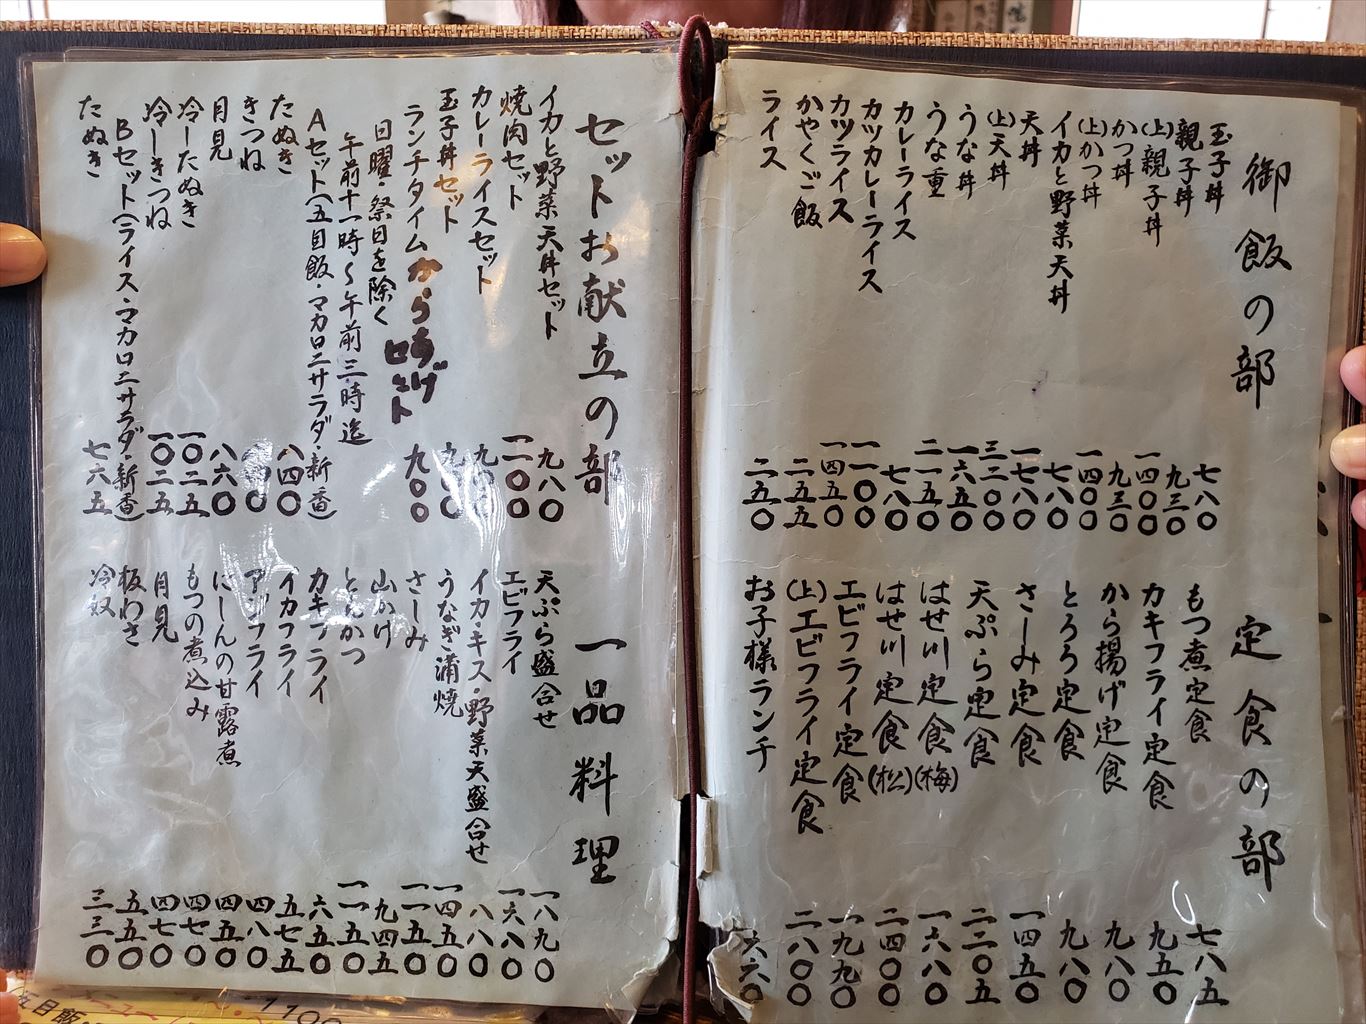 御飯の部
玉子丼 七八〇
親子丼 九三〇
(上)親子丼 一四〇〇
かつ丼 九三〇
(上)かつ丼 一四〇〇
イカと野菜天丼 七八〇
天丼 一七八〇
(上)天丼 三二〇〇
うな丼 一六五〇
うな重 二一五〇
カレーライス 七八〇
カツカレーライス 一一〇〇
カツライス 一四五〇
かやくご飯 二五五
ライス 二五〇
定食の部
もつ煮定食 七八五
カキフライ定食 九五〇
から揚げ定食 九八〇
とろろ定食 九八〇
さしみ定食 一四五〇
天ぷら定食 二二〇五
はせ川定食(梅) 一六八〇
はせ川定食(松) 二四〇〇
エビフライ定食 一九九〇
(上)エビフライ定食 二八〇〇
お子様ランチ 六六〇
セットお献立の部
イカと野菜天丼セット 九八〇
焼肉セット 一二〇〇
カレーライスセット
玉子丼セット
からあげセット 九〇〇
ランチタイム
日曜・祭日を除く
午前十一時〜午前三時迄
Aセット(五目飯・マカロニサラダ・新香)
たぬき 八四〇
きつね
月見 八六〇
冷したぬき 一〇二五
冷しきつね 一〇二五
Bセット(ライス・マカロニサラダ・新香)
たぬき 七六五
一品料理
天ぷら盛合せ 一八九〇
エビフライ 一六八〇
イカ・キス・野菜天盛合せ 八八〇
うなぎ蒲焼 一四五〇
さしみ 一一五〇
山かけ 九四五
とんかつ 一一五〇
カキフライ 六五〇
イカフライ 五七五
アジフライ 四八〇
にしんの甘露煮 四五〇
もつの煮込み 四七〇
月見 四七〇
板わさ 五五〇
冷奴 三三〇
五目飯
1100